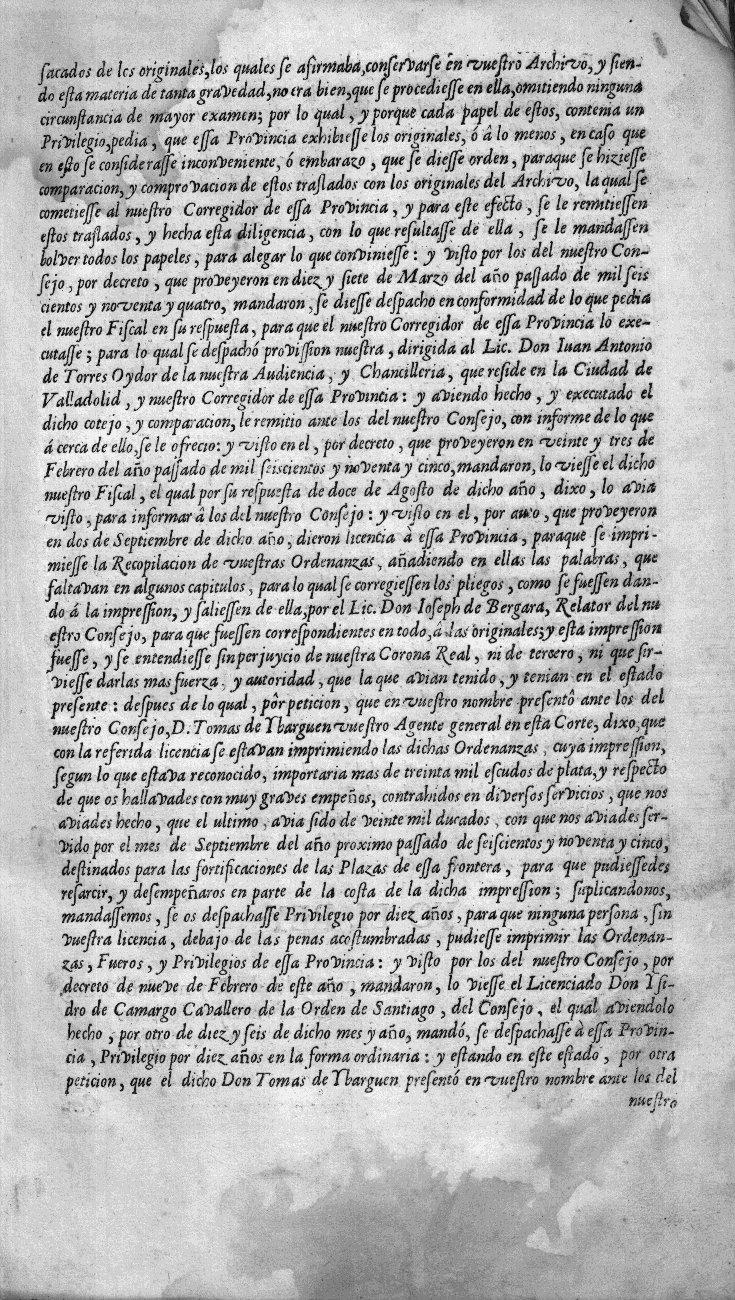 sacados de los originales, los quales se afirmaba, conservarse en vuestro Archivo, y sien-
do esta materia de tanta gravedad, no era bien, que se procediesse en ella, omitiendo ninguna
circunstancia de mayor examen; por lo qual, y porque cada papel de estos, contenia un
Privilegio, pedia, que essa Provincia exhibiesse los originales, ó â lo menos, en caso que
en esto se considerasse inconveniente, ó embarazo, que se diesse orden, paraque se hiziesse
comparacion, y comprovacion de estos traslados con los originales del Archivo, la qual se
cometiesse al nuestro Corregidor de essa Provincia, y para este efecto, se le remitiessen
estos traslados, y hecha esta diligencia, con lo que resultasse de ella, se le mandassen
bolver todos los papeles, para alegar lo que conviniesse: y visto por los del nuestro Con-
sejo, por decreto, que proveyeron en diez y siete de Marzo del año passado de mil seis
cientos y noventa y quatro, mandaron, se diesse despacho en conformidad de lo que pedia
el nuestro Fiscal en su respuesta, para que el nuestro Corregidor de essa Provincia lo exe-
cutasse; para lo qual se despachó provission nuestra, dirigida al Lic. Don Iuan Antonio
de Torres Oydor de la nuestra Audiencia, y Chancilleria, que reside en la Ciudad de
Valladolid, y nuestro Corregidor de essa Provincia: y aviendo hecho, y executado el
dicho cotejo, y comparacion, le remitio ante los del nuestro Consejo, con informe de lo que
á cerca de ello, se le ofrecio: y visto en el, por decreto, que proveyeron en veinte y tres de
Febrero del año passado de mil seiscientos y noventa y cinco, mandaron, lo viesse el dicho
nuestro Fiscal, el qual por su respuesta de doce de Agosto de dicho año, dixo, lo avia
visto, para informar â los del nuestro Consejo: y visto en el, por auto, que proveyeron
en dos de Septiembre de dicho año, dieron licencia à essa Provincia, paraque se impri-
miesse la Recopilacion de vuestras Ordenanzas, añadiendo en ellas las palabras, que
faltavan en algunos capitulos, para lo qual se corregiessen los pliegos, como se fuessen dan-
do á la impression, y saliessen de ella, por el Lic. Don Ioseph de Bergara, Relator del nu
estro Consejo, para que fuessen correspondientes en todo, â las originales; y esta impression
fuesse, y se entendiesse sin perjuycio de nuestra Corona Real, ni de tercero, ni que sir-
viesse darlas mas fuerza, y autoridad, que la que avian tenido, y tenian en el estado
presente: despues de lo qual, pôr peticion, que en vuestro nombre presentô ante los del
nuestro Consejo, D. Tomas de Ybarguen vuestro Agente general en esta Corte, dixo, que
con la referida licencia se estavan imprimiendo las dichas Ordenanzas, cuya impression,
segun lo que estava reconocido, importaria mas de treinta mil escudos de plata, y respecto
de que os hallavades con muy graves empeños, contrahidos en diversos servicios, que nos
aviades hecho, que el ultimo, avia sido de veinte mil ducados, con que nos aviades ser-
vido por el mes de Septiembre del año proximo passado de seiscientos y noventa y cinco,
destinados para las fortificaciones de las Plazas de essa frontera, para que pudiessedes
resarcir, y desempeñaros en parte de la costa de la dicha impression; suplicandonos,
mandassemos, se os despachasse Privilegio por diez años, para que ninguna persona, sin
vuestra licencia, debajo de las penas acostumbradas, pudiesse imprimir las Ordenan-
zas, Fueros, y Privilegios de essa Provincia: y visto por los del nuestro Consejo, por
decreto de nueve de Febrero de este año, mandaron, lo viesse el Licenciado Don Ysi-
dro de Camargo Cavallero de la Orden de Santiago, del Consejo, el qual aviendolo
hecho, por otro de diez y seis de dicho mes y año, mandó, se despachasse à essa Provin-
cia, Privilegio por diez años en la forma ordinaria: y estando en este estado, por otra
peticion, que el dicho Don Tomas de Ybarguen presentó en vuestro nombre ante los del
nuestro